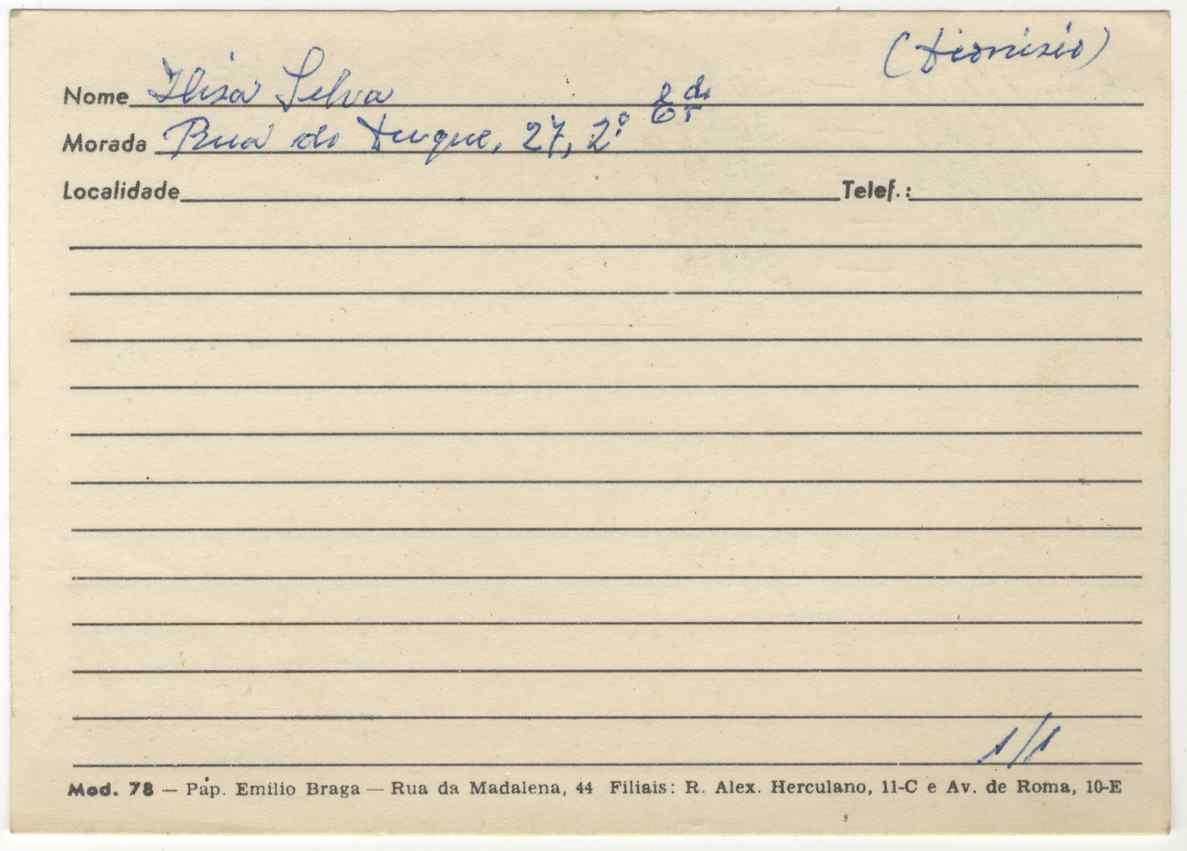 (Dionisio)
Nome Elisa Silva
Morada Rua do Duque, 27, 2º
Localidade Telef.:
1/1
Mod. 78 — Pap. Emilio Braga — Rua da Madalena, 44 Filiais: R. Alex. Herculano, 11-C e Av. de Roma, 10-E